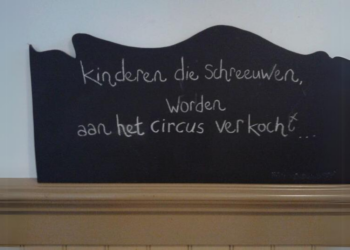 kinderen die schreeuwen,
worden
aan het circus verkocht...